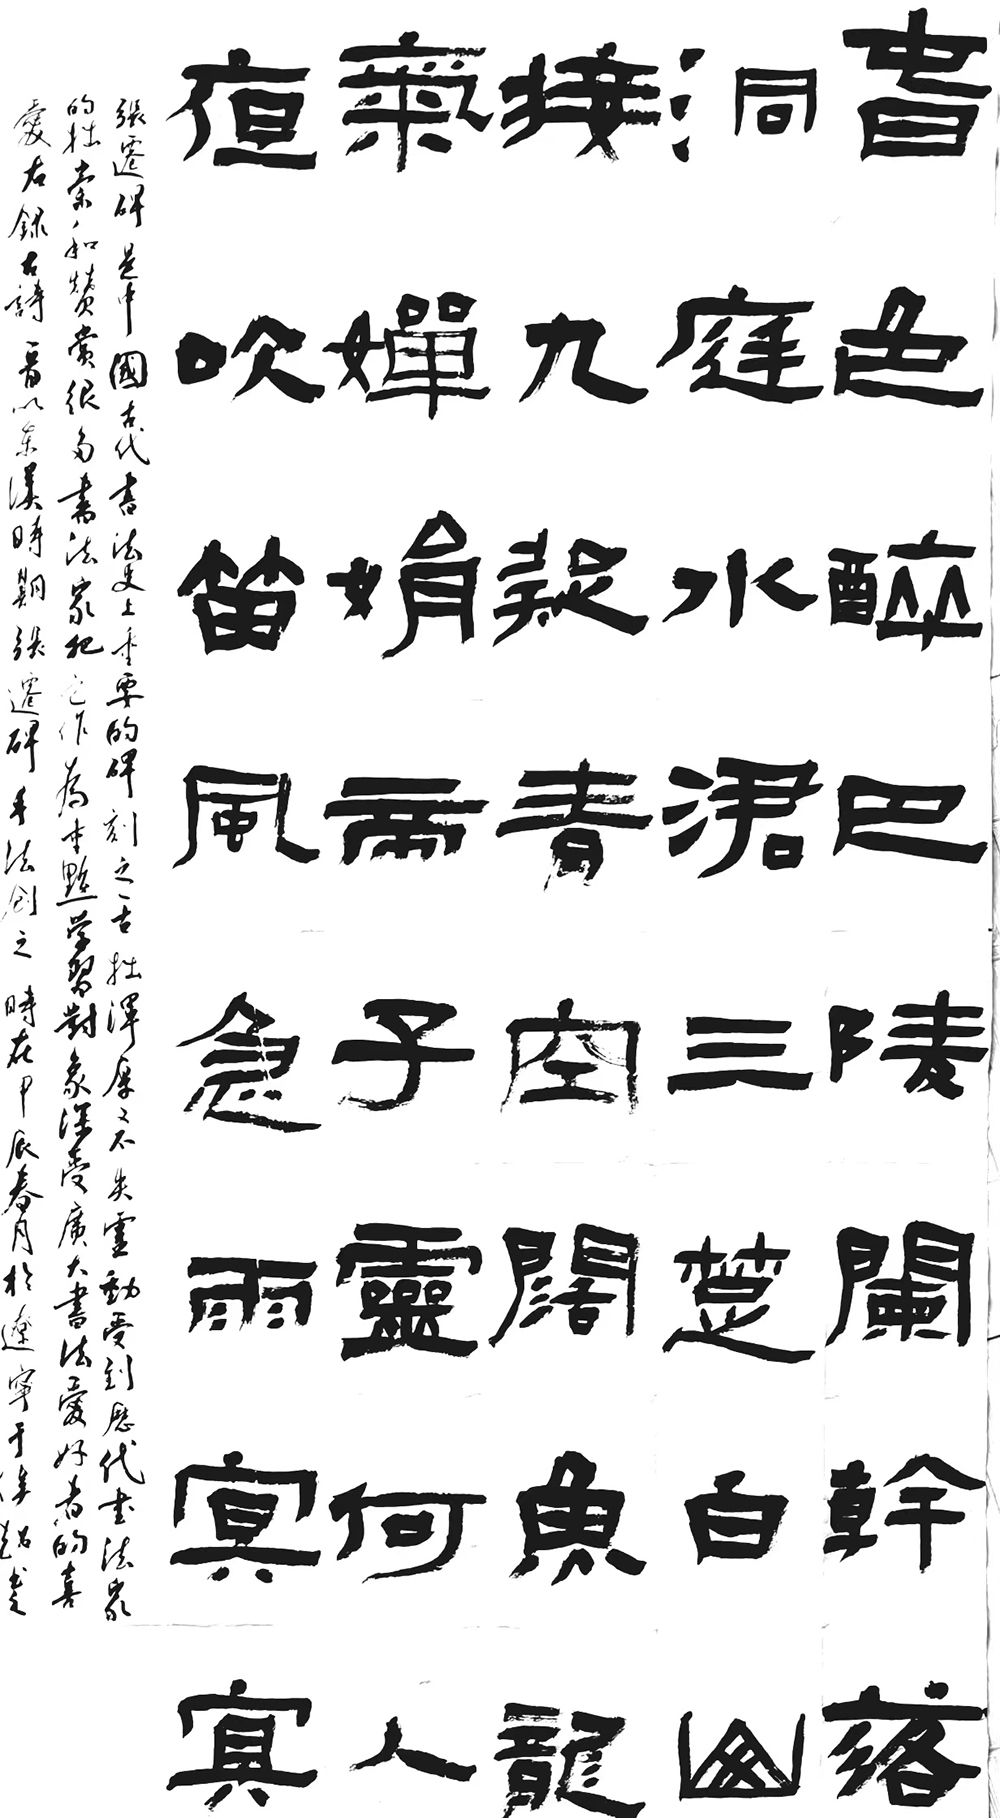 春色醉巴陵闌幹落
洞庭水涒三楚白山
接九疑青空闊魚龍
氣嬋娟帝子靈何人
夜吹笛風急雨冥冥
張遷碑是中國古代書法史上重要的碑刻之一古拙渾厚又不失靈動受到歷代書法家
的推崇和贊賞很多書法家把它作為重點学習對象深受廣大書法愛好者的喜
愛右録古詩一首以東漢時期張遷碑手法創之時在甲辰春月於遼寧于書